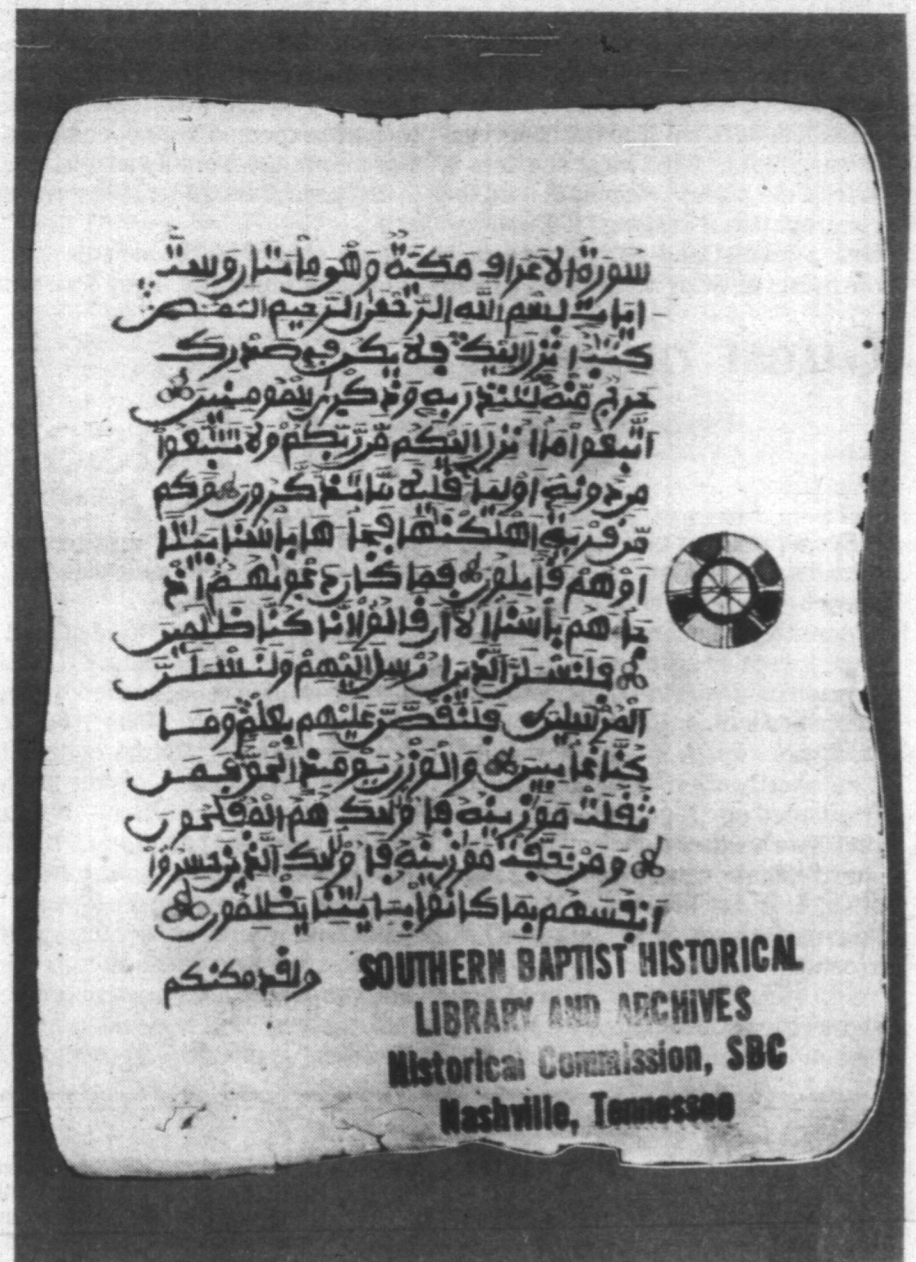 سورة الاعراف مكية وهي مأتار وست
ايات بسم الله الرحمن الرحيم المص
كتب انزل اليك فلا يكن في صدرك
حرج منه لتنذر به وذكرى للمومنين
اتبعوا ما انزل اليكم من ربكم ولا تتبعوا
من دونه اوليا قليلا ما تذكرون وكم
من قرية اهلكنها فجاها باسنا بيتا
او هم قايلون فما كان دعويهم اذ
جاهم باسنا الا ان قالوا انا كنا ظلمين
فلنسلن الذين ارسل اليهم ولنسلن
المرسلين فلنقصن عليهم بعلم وما
كنا غايبين والوزن يومئذ الحق فمن
ثقلت موزينه فاوليك هم المفلحون
ومن خفت موزينه فاوليك الذين خسروا
انفسهم بما كانوا بايتنا يظلمون
ولقد مكنكم
SOUTHERN BAPTIST HISTORICAL
LIBRARY AND ARCHIVES
Historical Commission, SBC
Nashville, Tennessee